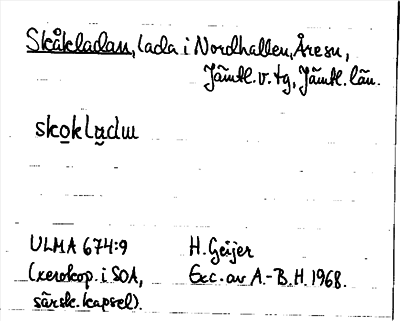 Skåkladan, lada i Nordhallen, Åresn,
Jämtl. v. tg, Jämtl. län.
sko̲kla̮dɯ
ULMA 674:9 H. Geijer
(xerokop. i SOA, Exc. av A.-B. H. 1968.
särsk. kapsel).